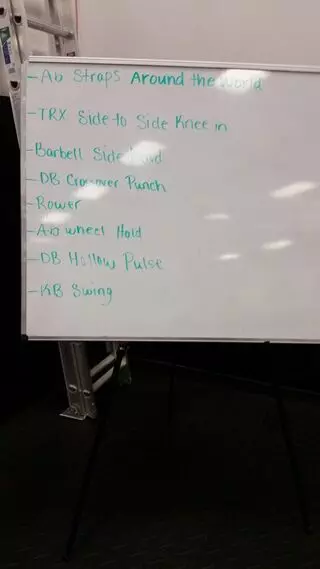 - Ab Straps Around the World
- TRX Side to Side Knee in
- Barbell Side
- DB Crossover Punch
- Rower
- Ab wheel Hold
- DB Hollow Pulse
- KB Swing